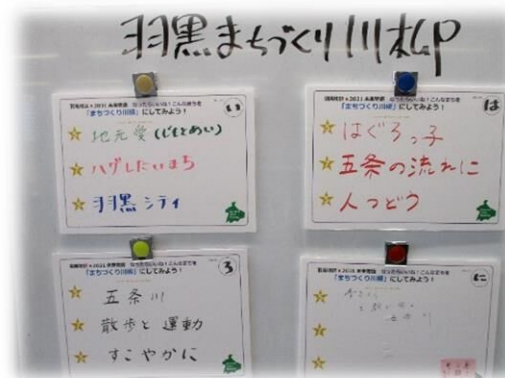 羽黒まちづくり川柳
い
「まちづくり川柳」にしてみよう！
地元愛(じもとあい)
ハグしたいまち
羽黒シティ
は
「まちづくり川柳」にしてみよう！
はぐろっ子
五条の流れに
人つどう
ろ
「まちづくり川柳」にしてみよう！
五条川
散歩と運動
すこやかに
に
「まちづくり川柳」にしてみよう！
五条川